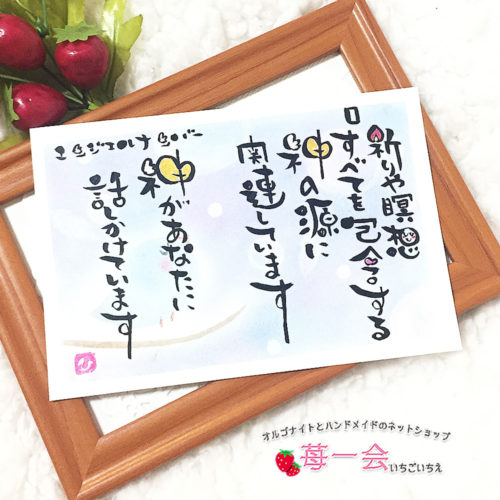 祈りや瞑想
0すべてを包含する
神の源に
関連しています
エンジェルナンバー
神があなたに
話しかけています
オルゴナイトとハンドメイドのネットショップ
苺一会いちごいちえ